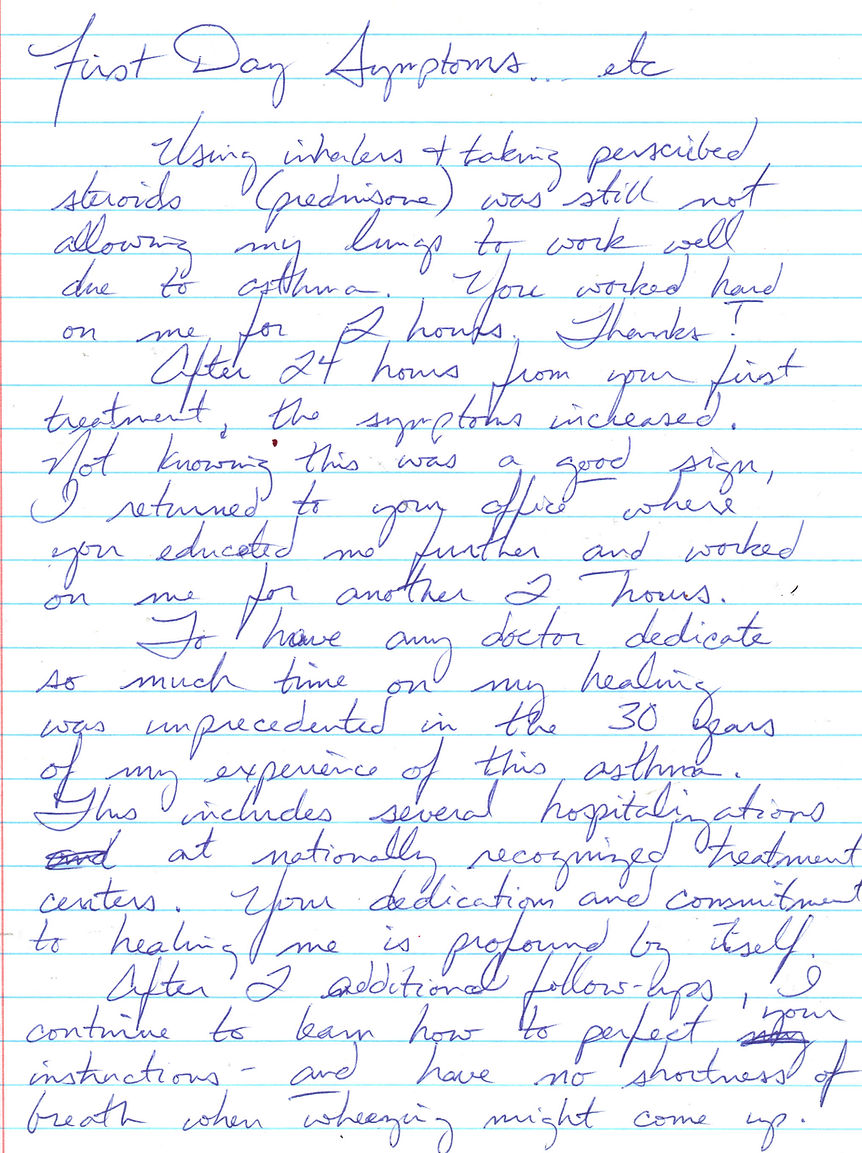 First Day Symptoms... etc
Using inhalers + taking perscribed
steroids (prednisone) was still not
allowing my lungs to work well
due to asthma. You worked hard
on me for 2 hours. Thanks!
After 24 hours from your first
treatment, the symptoms increased.
Not knowing this was a good sign,
I returned to your office where
you educated me further and worked
on me for another 2 hours.
To have any doctor dedicate
so much time on my healing
was unprecedented in the 30 years
of my experience of this asthma.
This includes several hospitalizations
at nationally recognized treatment
centers. Your dedication and commitment
to healing me is profound by itself.
After 2 additional follow-ups, I
continue to learn how to perfect your
instructions - and have no shortness of
breath when wheezing might come up.